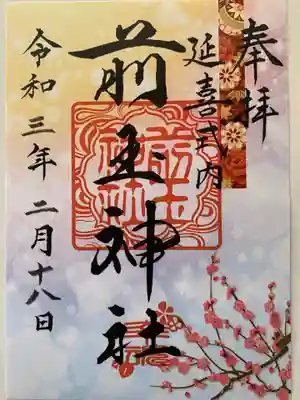 奉拝
延喜式内
前玉神社
令和三年二月十八日